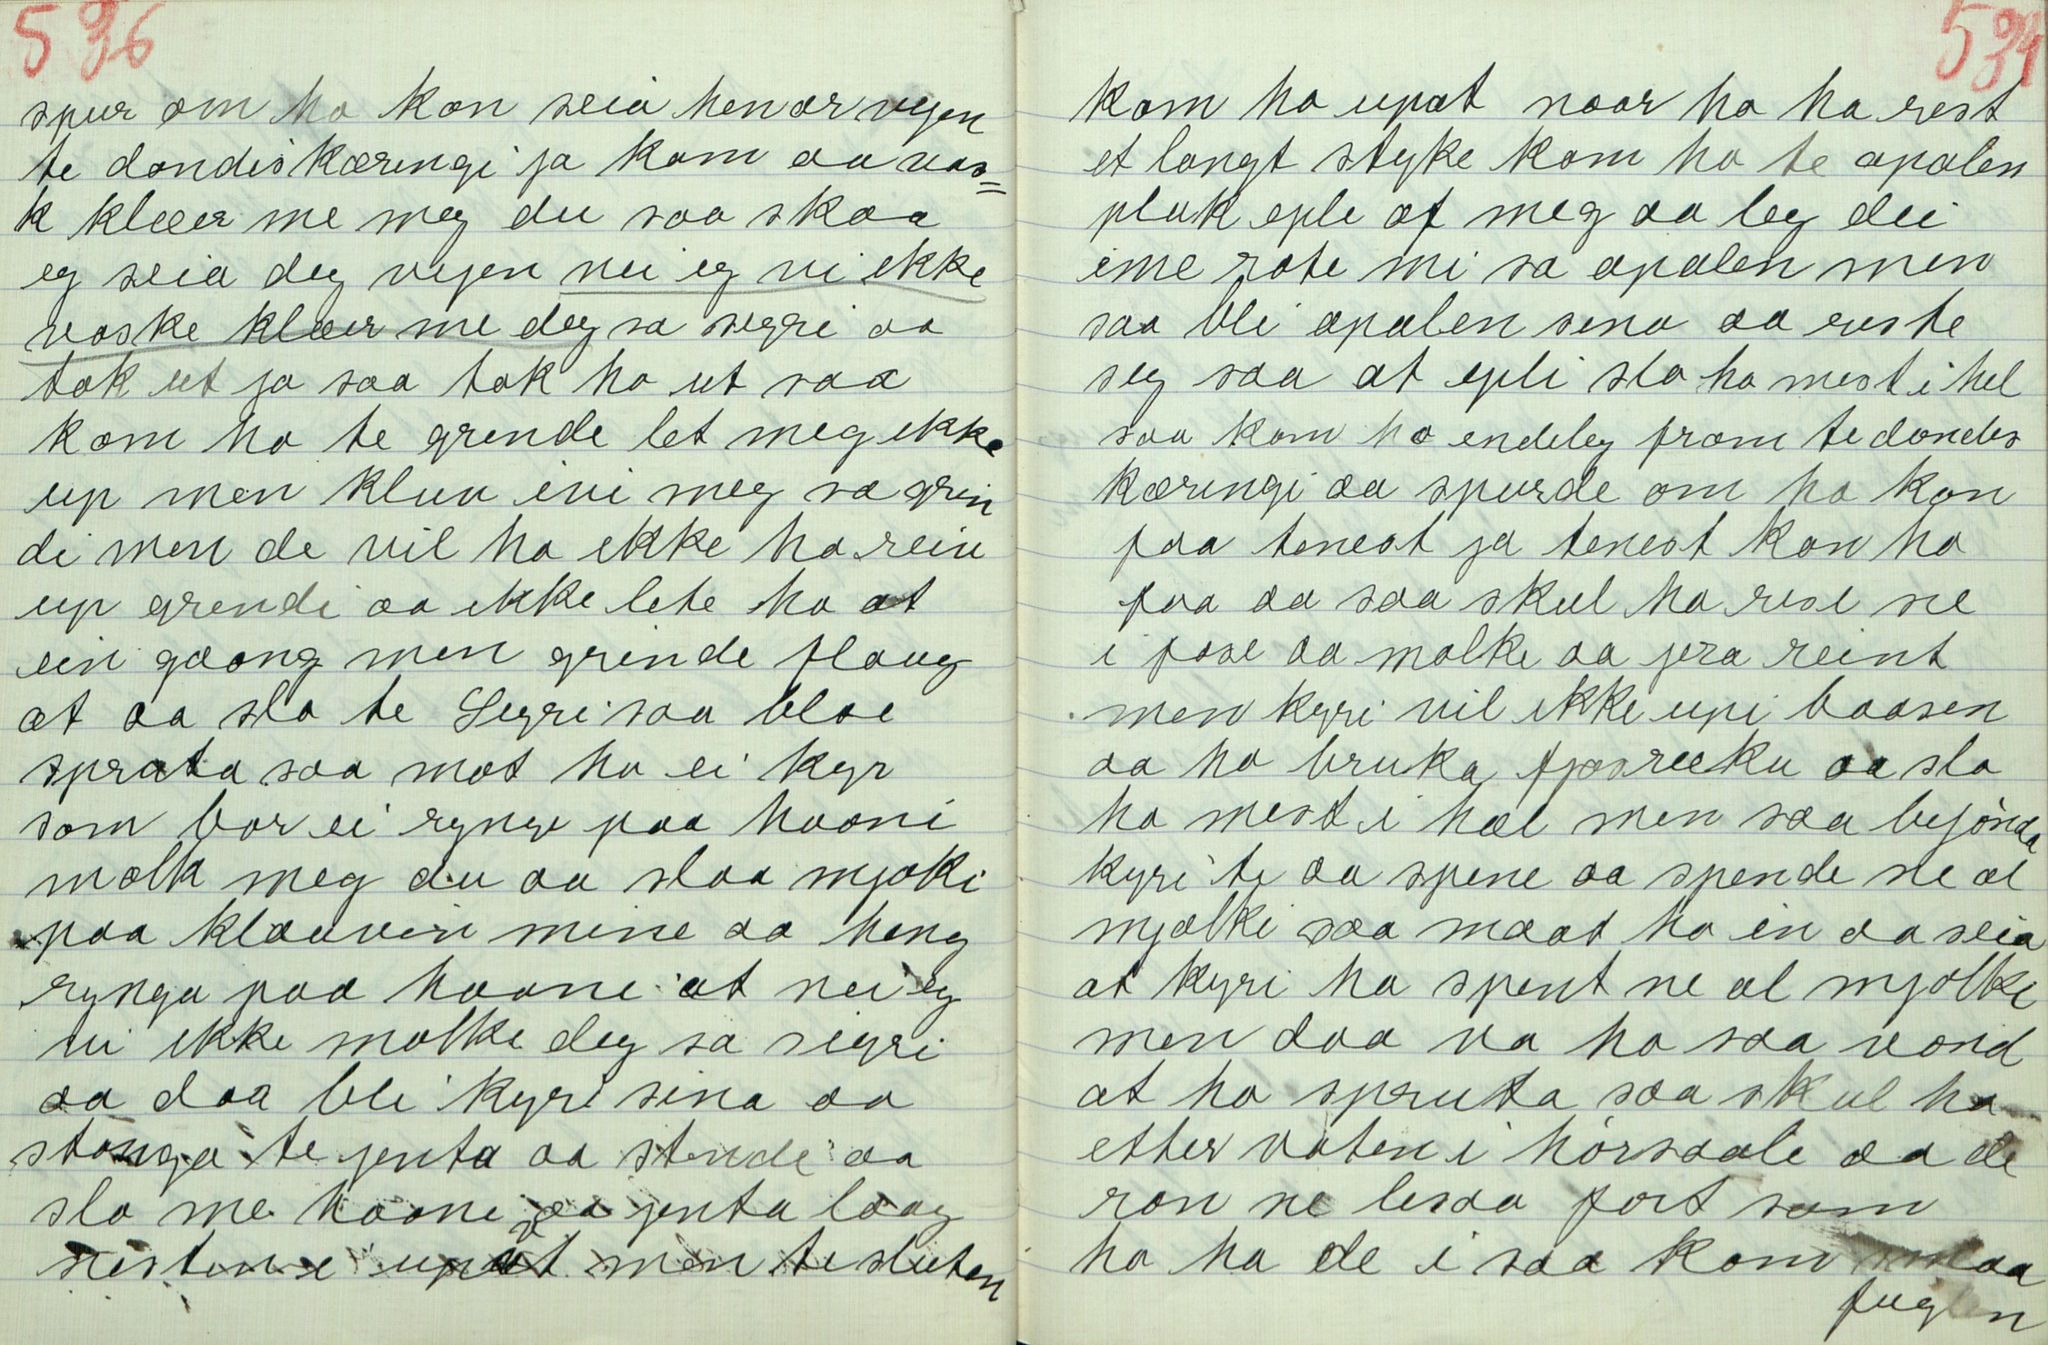 536
spur om ho kan seia hen ær vejen
te dondiskæringi ja kom aa vas=
k klæer me meg du saa skaa
eg seia deg vejen nei eg vi ikke
vaske klæer me deg sa segri aa
tok ut ja saa tok ho ut saa
kom ho te grende let meg ikke
up men kluu ivi meg sa grin
di men de vil ho ikke ho reiv
up grendi aa ikke lete ho at
ein gaang men grinde flaug
at aa slo te Segri saa bloe
spruta saa møt ho ei kyr
som bar ei rynge paa hooni
molk meg du aa slaa mjøki
paa klauven mine aa heng
rynga paa hoone at nei eg
vi ikke molke deg sa sigri
aa daa blei kyri sina aa
stanga te jenta aa stende aa
slo me hoone aa jenta laag
nesten i upøt men te sluten
kom ho upøt naar ho ha rest
et langt styke kom ho te apalen
pluk eple af meg aa leg dei
ime rote mi sa apalen men
saa blei apalen sena aa ruste
seg saa at epli slo ho mest i hel
saa kom ho endeleg fram te dondes
kæringi aa spurde om ho kan
faa tenest ja tenest kan ho
faa aa saa skul ho rese ne
i fose aa molke aa jera reint
men kyri vil ikke upi baasen
aa ho bruka fjosreeku aa slo
ho mest i hæl men saa bejønda
kyri te aa spene aa spende ne al
mjølki saa maat ho in aa seia
at kyri ha spent ne al mjølki
men daa va ho saa vond
at ho spruta saa skul ho
etter vaten i hørsaale aa de
ran ne lesaa fort som
ho ha de i saa kom smaa
fuglen